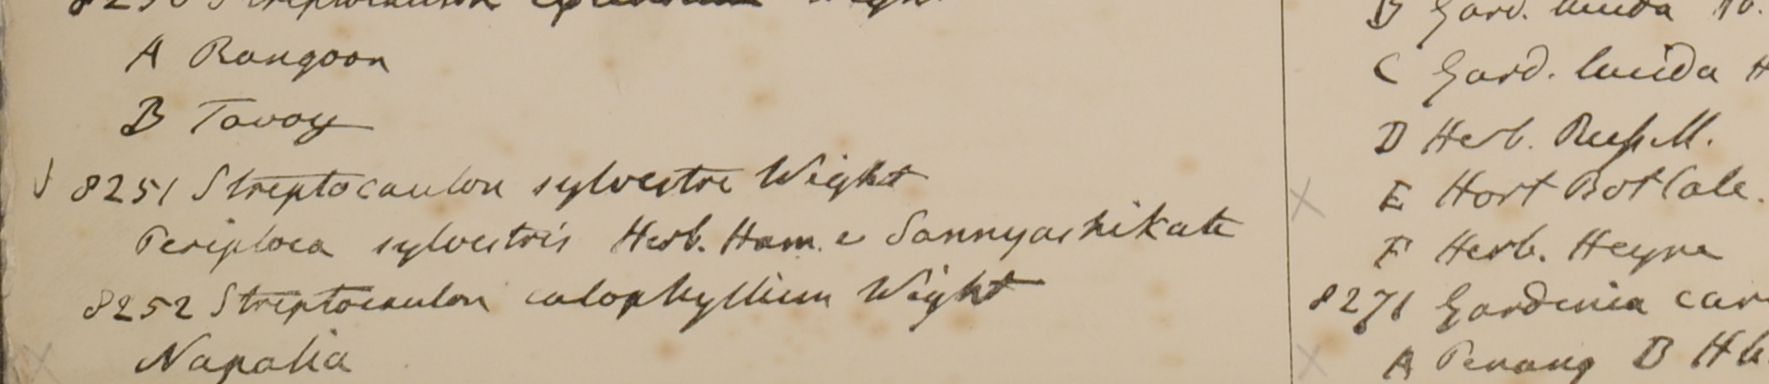 8250 Streptocaulon Wight
A Rangoon
B Tavoy
8251 Streptocaulon sylvestre Wight
Periploca sylvestris Herb. Ham. e Sannyashikata
8252 Streptocaulon calophyllum Wight
Napalia
B Gard. lucida
C Gard. lucida H
D Herb. Russell.
E Hort Bot Calc.
F Herb. Heyne
8271 Gardenia car
A Penang B Hb